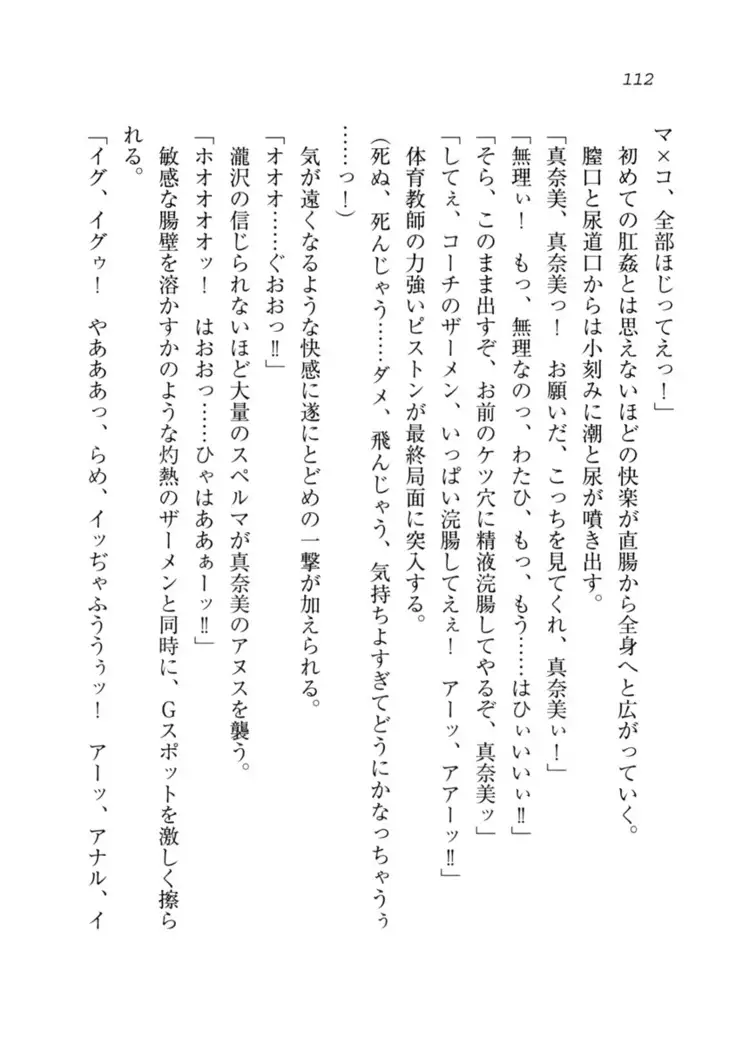 112
マ×コ、全部ほじってえっ！」
初めての肛姦とは思えないほどの快楽が直腸から全身へと広がっていく。
膣口と尿道口からは小刻みに潮と尿が噴き出す。
「真奈美、真奈美っ！　お願いだ、こっちを見てくれ、真奈美ぃ！」
「無理ぃ！　もっ、無理なのっ、わたひ、もっ、もう……はひぃいいぃ‼」
「そら、このまま出すぞ、お前のケツ穴に精液浣腸してやるぞ、真奈美ッ」
「してぇ、コーチのザーメン、いっぱい浣腸してえぇ！　アーッ、アアーッ‼」
体育教師の力強いピストンが最終局面に突入する。
（死ぬ、死んじゃう……ダメ、飛んじゃう、気持ちよすぎてどうにかなっちゃうぅ
……っ！）
気が遠くなるような快感に遂にとどめの一撃が加えられる。
「オオオ……ぐおおっ‼」
瀧沢の信じられないほど大量のスペルマが真奈美のアヌスを襲う。
「ホオオオオッ！　はおおっ……ひゃはああぁーッ‼」
敏感な腸壁を溶かすかのような灼熱のザーメンと同時に、Gスポットを激しく擦ら
れる。
「イグ、イグゥ！　やあああっ、らめ、イッぢゃふううぅッ！　アーッ、アナル、イ